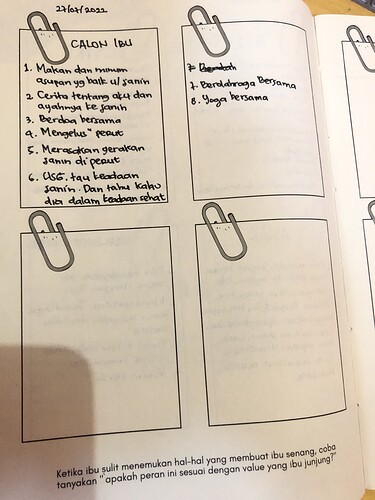 27/07/2022
CALON IBU
1. Makan dan minum
asupan yg baik u/ janin
2. Cerita tentang aku dan
ayahnya ke janin
3. Berdoa bersama
4. Mengelus" perut
5. Merasakan gerakan
janin di perut
6. USG. tau keadaan
janin. Dan tahu kalau
dia dalam keadaan sehat
7. Berolahraga Bersama
8. Yoga bersama
Ketika ibu sulit menemukan hal-hal yang membuat ibu senang, coba
tanyakan "apakah peran ini sesuai dengan value yang ibu junjung?"